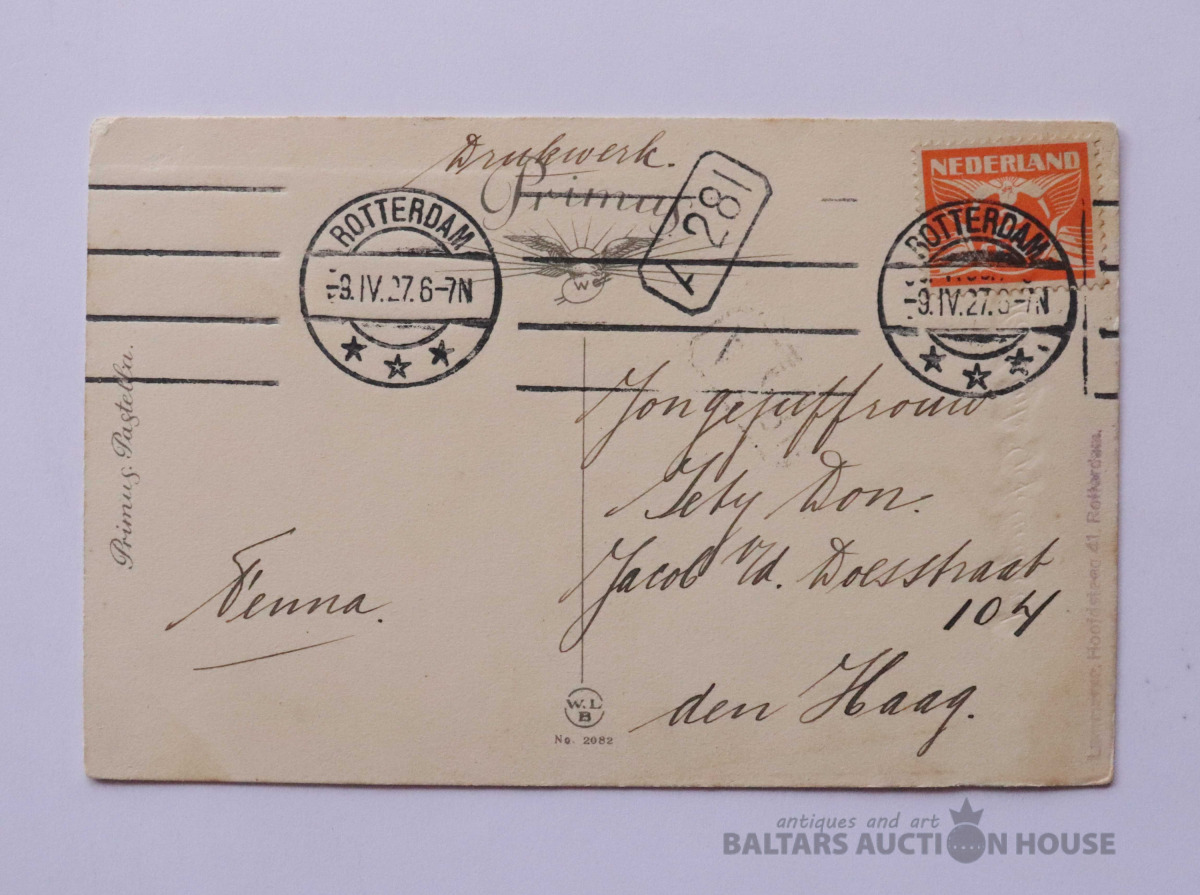 Drukwerk.
Primus
W
A 281
NEDERLAND
ROTTERDAM
-9.IV.27.6-7N
ROTTERDAM
9.IV.27.6-7N
Primus Pastella.
Jongejuffrouw
Jety Don.
Jacob v/d. Doesstraat
104
den Haag.
Fenna.
W.L
B
No. 2082
41, Rotterdam.
antiques and art
BALTARS AUCTION HOUSE